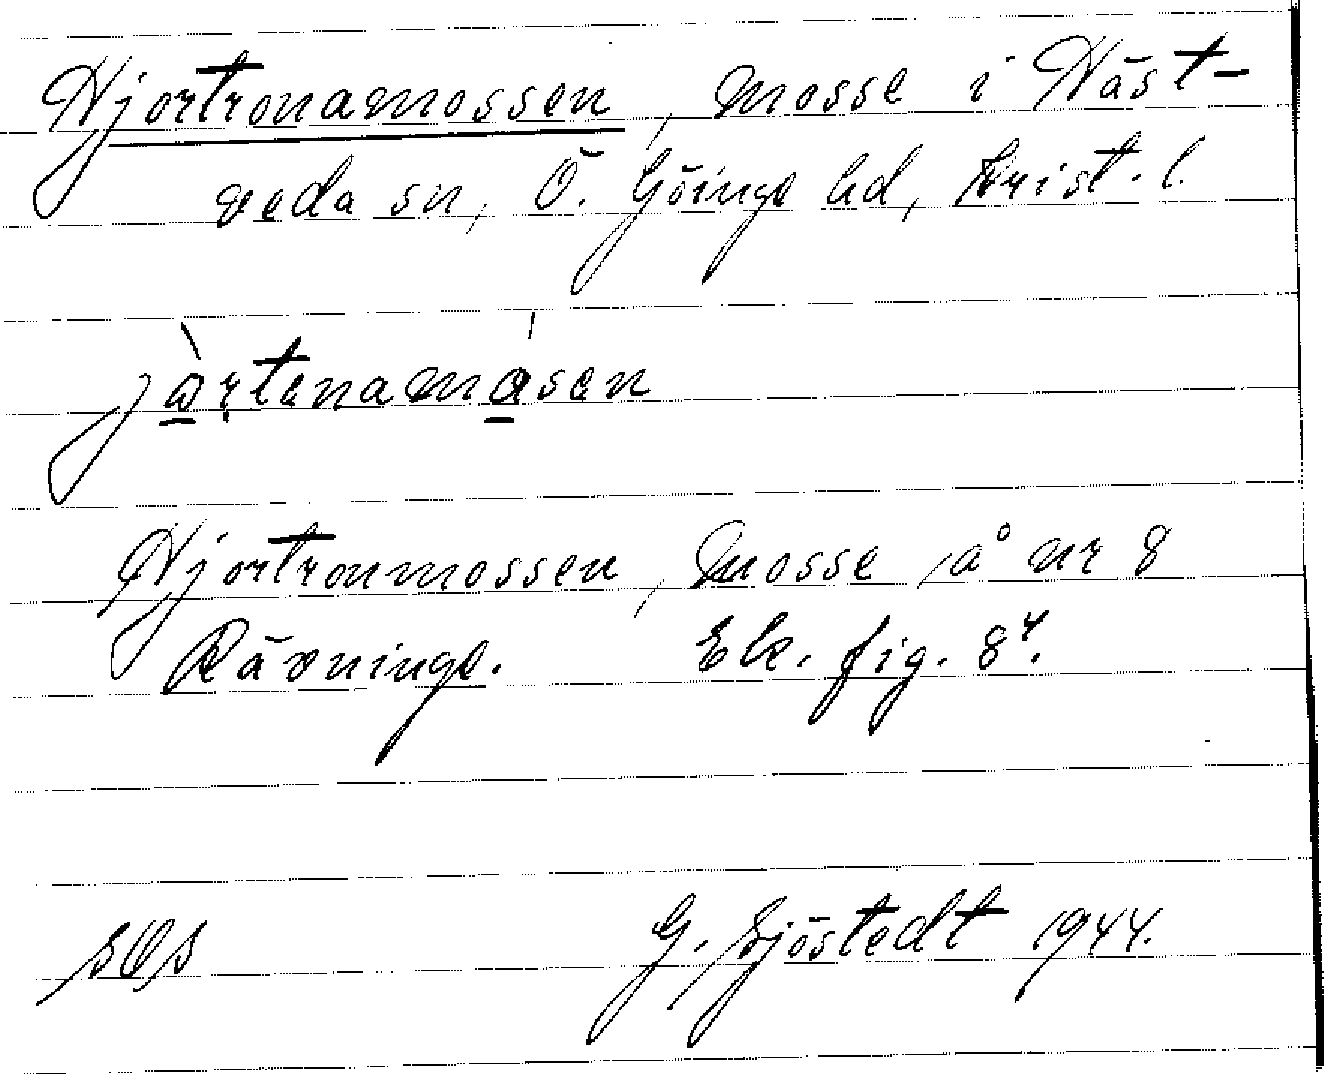 Hjortronamossen, mosse i Häst-
veda sn, Ö. Göinge hd, Krist. l.
jòrtanamåsen
Hjortronmossen, mosse å nr 8
Rävninge. Ek. fig. 8⁴.
G. Sjöstedt 1944.